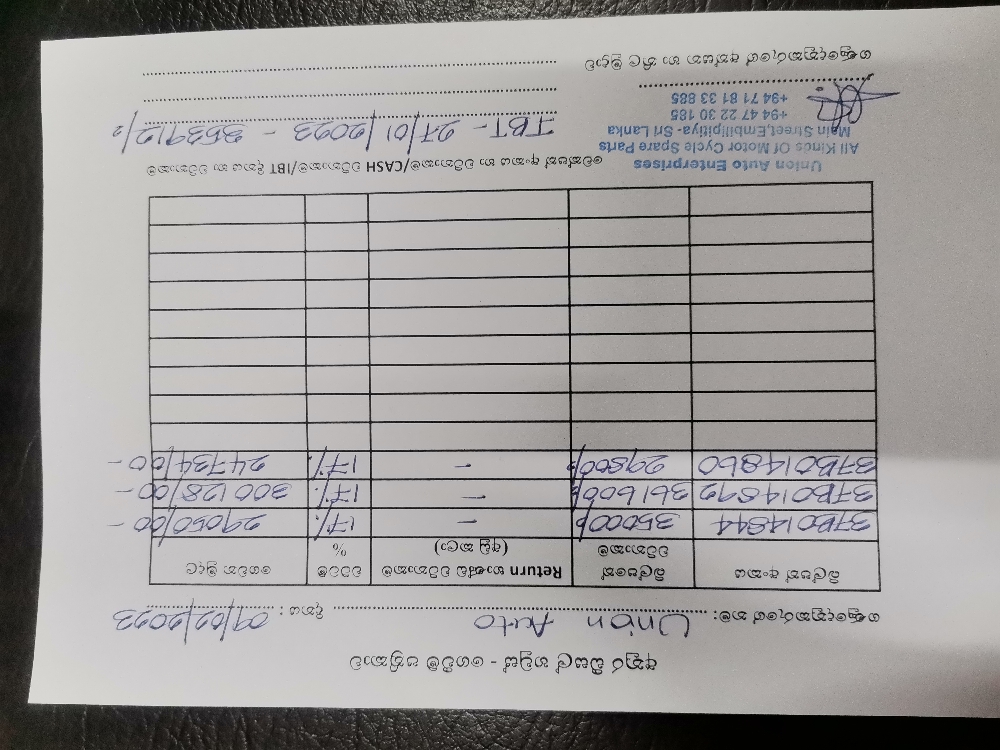 අසුර වීලේ හවුස් - ගෙවීම් පත්‍රිකාව
ගනුදෙනුකරුගේ නම: Union Auto දිනය : 09/02/2023
බිල්පත් අංකය බිල්පතේ වටිනාකම Return භාණ්ඩ වටිනාකම (අඩු කළා) වට්ටම් % ගෙවන මුදල
37B014844 35000/- - 17% 29050/00 -
37B014892 361600/- - 17% 300128/00 -
37B014860 29800/- - 17% 24734/00 -
චෙක්පත් අංකය හා වටිනාකම/CASH වටිනාකම/IBT දිනය හා වටිනාකම
Union Auto Enterprises
All Kinds Of Motor Cycle Spare Parts
Main Street,Embilipitiya- Sri Lanka
+94 47 22 30 185
+94 71 81 33 885
IBT - 27/01/2023 - 353912/=
ගනුදෙනුකරුගේ අත්සන හා නිල මුද්‍රාව